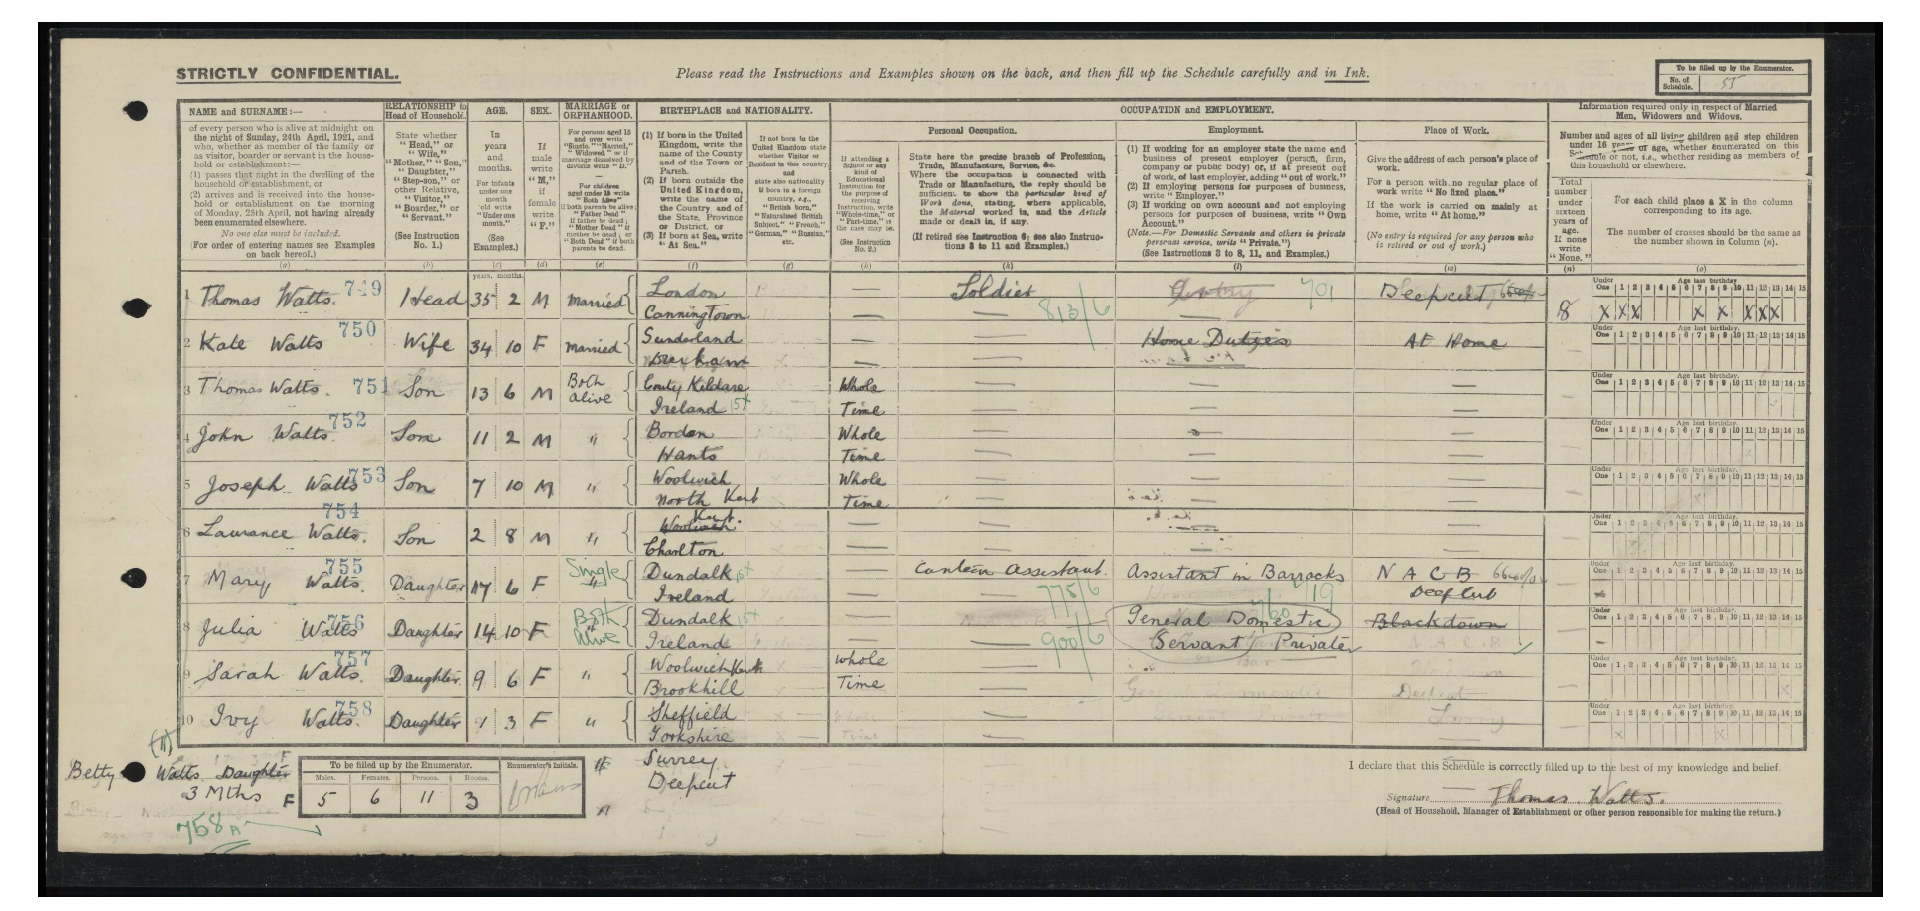 STRICTLY CONFIDENTIAL.
Please read the Instructions and Examples shown on the back, and then fill up the Schedule carefully and in Ink.
To be filled up by the Enumerator.
No. of Schedule. 55
NAME and SURNAME:—
of every person who is alive at midnight on
the night of Sunday, 24th April, 1921, and
who, whether as member of the family or
as visitor, boarder or servant in the house-
hold or establishment:—
(1) passes that night in the dwelling of the
household or establishment, or
(2) arrives and is received into the house-
hold or establishment on the morning
of Monday, 25th April, not having already
been enumerated elsewhere.
No one else must be included.
(For order of entering names see Examples
on back hereof.)
(a)
RELATIONSHIP to
Head of Household.
State whether
"Head," or
"Wife,"
"Mother," "Son,"
"Daughter,"
"Step-son," or
other Relative,
"Visitor,"
"Boarder," or
"Servant."
(See Instruction
No. 1.)
(b)
AGE.
In
years
and
months.
For infants
under one
month
old write
"Under one
month."
(See
Examples.)
(c)
SEX.
If
male
write
"M,"
if
female
write
"F."
(d)
MARRIAGE or
ORPHANHOOD.
For persons aged 15
and over write
"Single," "Married,"
"Widowed," or if
marriage dissolved by
divorce write "D."
For children
aged under 15 write
"Both Alive"
if both parents be alive;
"Father Dead"
if father be dead;
"Mother Dead" if
mother be dead; or
"Both Dead" if both
parents be dead.
(e)
BIRTHPLACE and NATIONALITY.
(1) If born in the United
Kingdom, write the
name of the County
and of the Town or
Parish.
(2) If born outside the
United Kingdom,
write the name of
the State, Province
or District, or
(3) If born at Sea, write
"At Sea."
(f)
If not born in the
United Kingdom state
whether Visitor or
Resident in this country,
and
state also nationality
if born in a foreign
country, e.g.,
"British born,"
"Naturalised British
Subject," "French,"
"German," "Russian,"
etc.
(g)
OCCUPATION and EMPLOYMENT.
If attending a
School or any
kind of
Educational
Institution for
the purpose of
receiving
Instruction, write
"Whole-time," or
"Part-time," as
the case may be.
(See Instruction
No. 2.)
(h)
Personal Occupation.
State here the precise branch of Profession,
Trade, Manufacture, Service, &c.
Where the occupation is connected with
Trade or Manufacture, the reply should be
sufficient to show the particular kind of
Work done, stating, where applicable,
the Material worked in, and the Article
made or dealt in, if any.
(If retired see Instruction 6; see also Instruc-
tions 3 to 11 and Examples.)
(k)
Employment.
(1) If working for an employer state the name and
business of present employer (person, firm,
company or public body) or, if at present out
of work, of last employer, adding "out of work."
(2) If employing persons for purposes of business,
write "Employer."
(3) If working on own account and not employing
persons for purposes of business, write "Own
Account."
(Note.—For Domestic Servants and others in private
personal service, write "Private.")
(See Instructions 3 to 8, 11, and Examples.)
(l)
Place of Work.
Give the address of each person's place of
work.
For a person with no regular place of
work write "No fixed place."
If the work is carried on mainly at
home, write "At home."
(No entry is required for any person who
is retired or out of work.)
(m)
Information required only in respect of Married
Men, Widowers and Widows.
Number and ages of all living children and step children
under 16 years of age, whether enumerated on this
Schedule or not, i.e., whether residing as members of
this household or elsewhere.
Total
number
under
sixteen
years of
age.
If none
write
"None."
(n)
For each child place a X in the column
corresponding to its age.
The number of crosses should be the same as
the number shown in Column (n).
(o)
years. months.
Under One Age last birthday. 1 2 3 4 5 6 7 8 9 10 11 12 13 14 15
1 Thomas Watts. 749 Head 35 2 M Married London — Soldier 813/6 701 Deepcut 8 X X X X X X X X
Canningtown — —
2 Kate Watts 750 Wife 34 10 F Married Sunderland — — Home Duties At Home
Durham — —
3 Thomas Watts. 751 Son 13 6 M Both Alive County Kildare Whole — — —
Ireland Time — — —
4 John Watts. 752 Son 11 2 M " Bordon Whole — — —
Hants Time — — —
5 Joseph Watts 753 Son 7 10 M " Woolwich Whole — —
North Kent Time — —
6 Laurance Watts. 754 Son 2 8 M " Woolwich Kent. — — — —
Charlton — — —
7 Mary Watts. 755 Daughter 17 6 F Single Dundalk — Canteen Assistant. Assistant in Barracks N A C B
Ireland — 775/6 719 Deepcut
8 Julia Watts 756 Daughter 14 10 F Both Alive Dundalk — General Domestic Blackdown
Ireland — 900/6 Servant Private
9 Sarah Watts. 757 Daughter 9 6 F " Woolwich Kent Whole —
Brookhill Time —
10 Ivy Watts. 758 Daughter 1 3 F " Sheffield —
Yorkshire —
(11)
Betty Watts Daughter Surrey
3 Mths F Deepcut
758A
To be filled up by the Enumerator.
Males. Females. Persons. Rooms.
5 6 11 3
Enumerator's Initials.
I declare that this Schedule is correctly filled up to the best of my knowledge and belief.
Signature Thomas Watts.
(Head of Household, Manager of Establishment or other person responsible for making the return.)